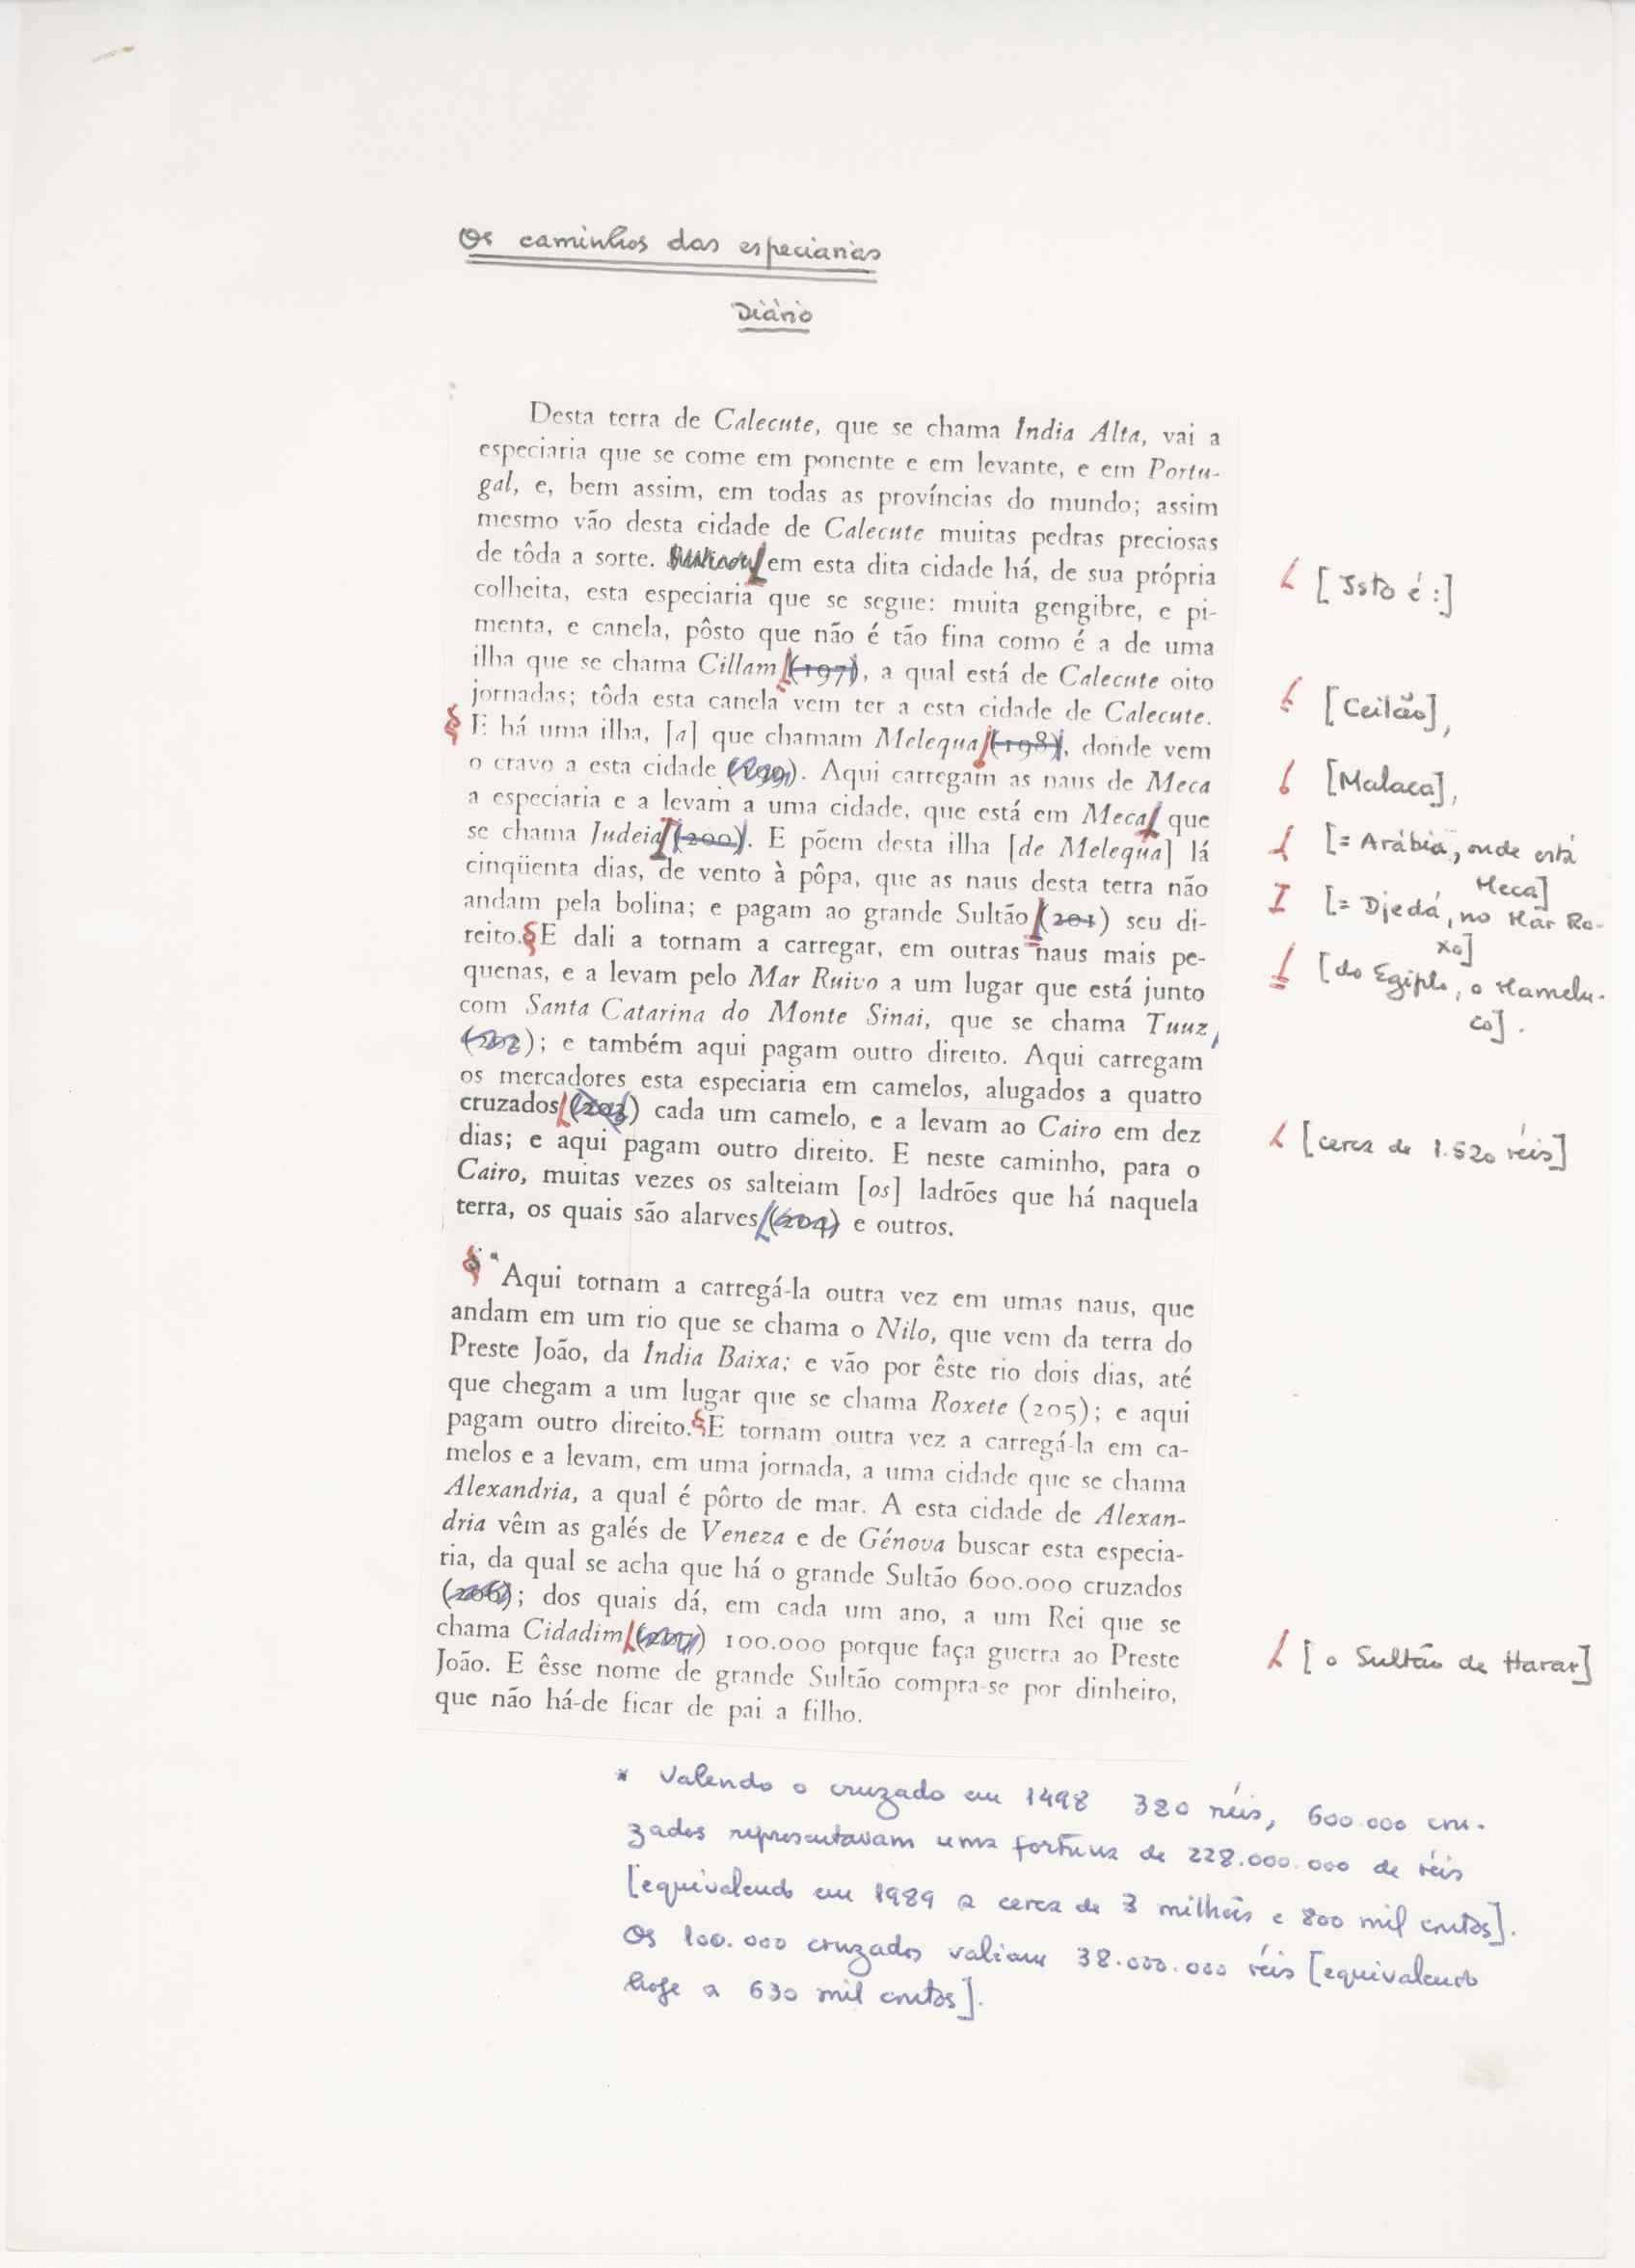 Os caminhos das especiarias
Diário
Desta terra de Calecute, que se chama Índia Alta, vai a
especiaria que se come em ponente e em levante, e em Portu-
gal, e, bem assim, em todas as províncias do mundo; assim
mesmo vão desta cidade de Calecute muitas pedras preciosas
de tôda a sorte. em esta dita cidade há, de sua própria
[Isto é:]
colheita, esta especiaria que se segue: muita gengibre, e pi-
menta, e canela, pôsto que não é tão fina como é a de uma
ilha que se chama Cillam (197), a qual está de Calecute oito
[Ceilão],
jornadas; tôda esta canela vem ter a esta cidade de Calecute.
§ E há uma ilha, [a] que chamam Melequa (198), donde vem
[Malaca],
o cravo a esta cidade (199). Aqui carregam as naus de Meca
a especiaria e a levam a uma cidade, que está em Meca que
[= Arábia, onde está
Meca]
se chama Judeia (200). E põem desta ilha [de Melequa] lá
[= Djedá, no Mar Ro-
xo]
cinqüenta dias, de vento à pôpa, que as naus desta terra não
andam pela bolina; e pagam ao grande Sultão (201) seu di-
[do Egipto, o Mamelu-
co].
reito. § E dali a tornam a carregar, em outras naus mais pe-
quenas, e a levam pelo Mar Ruivo a um lugar que está junto
com Santa Catarina do Monte Sinai, que se chama Tuuz
(202); e também aqui pagam outro direito. Aqui carregam
os mercadores esta especiaria em camelos, alugados a quatro
cruzados (203) cada um camelo, e a levam ao Cairo em dez
[cerca de 1.520 réis]
dias; e aqui pagam outro direito. E neste caminho, para o
Cairo, muitas vezes os salteiam [os] ladrões que há naquela
terra, os quais são alarves (204) e outros.
§ Aqui tornam a carregá-la outra vez em umas naus, que
andam em um rio que se chama o Nilo, que vem da terra do
Preste João, da Índia Baixa; e vão por êste rio dois dias, até
que chegam a um lugar que se chama Roxete (205); e aqui
pagam outro direito. § E tornam outra vez a carregá-la em ca-
melos e a levam, em uma jornada, a uma cidade que se chama
Alexandria, a qual é pôrto de mar. A esta cidade de Alexan-
dria vêm as galés de Veneza e de Génova buscar esta especia-
ria, da qual se acha que há o grande Sultão 600.000 cruzados
(206); dos quais dá, em cada um ano, a um Rei que se
chama Cidadim (207) 100.000 porque faça guerra ao Preste
[o Sultão de Harar]
João. E êsse nome de grande Sultão compra-se por dinheiro,
que não há-de ficar de pai a filho.
* Valendo o cruzado em 1498 380 réis, 600.000 cru-
zados representavam uma fortuna de 228.000.000 de réis
[equivalendo em 1989 a cerca de 3 milhões e 800 mil contos].
Os 100.000 cruzados valiam 38.000.000 réis [equivalendo
hoje a 630 mil contos].